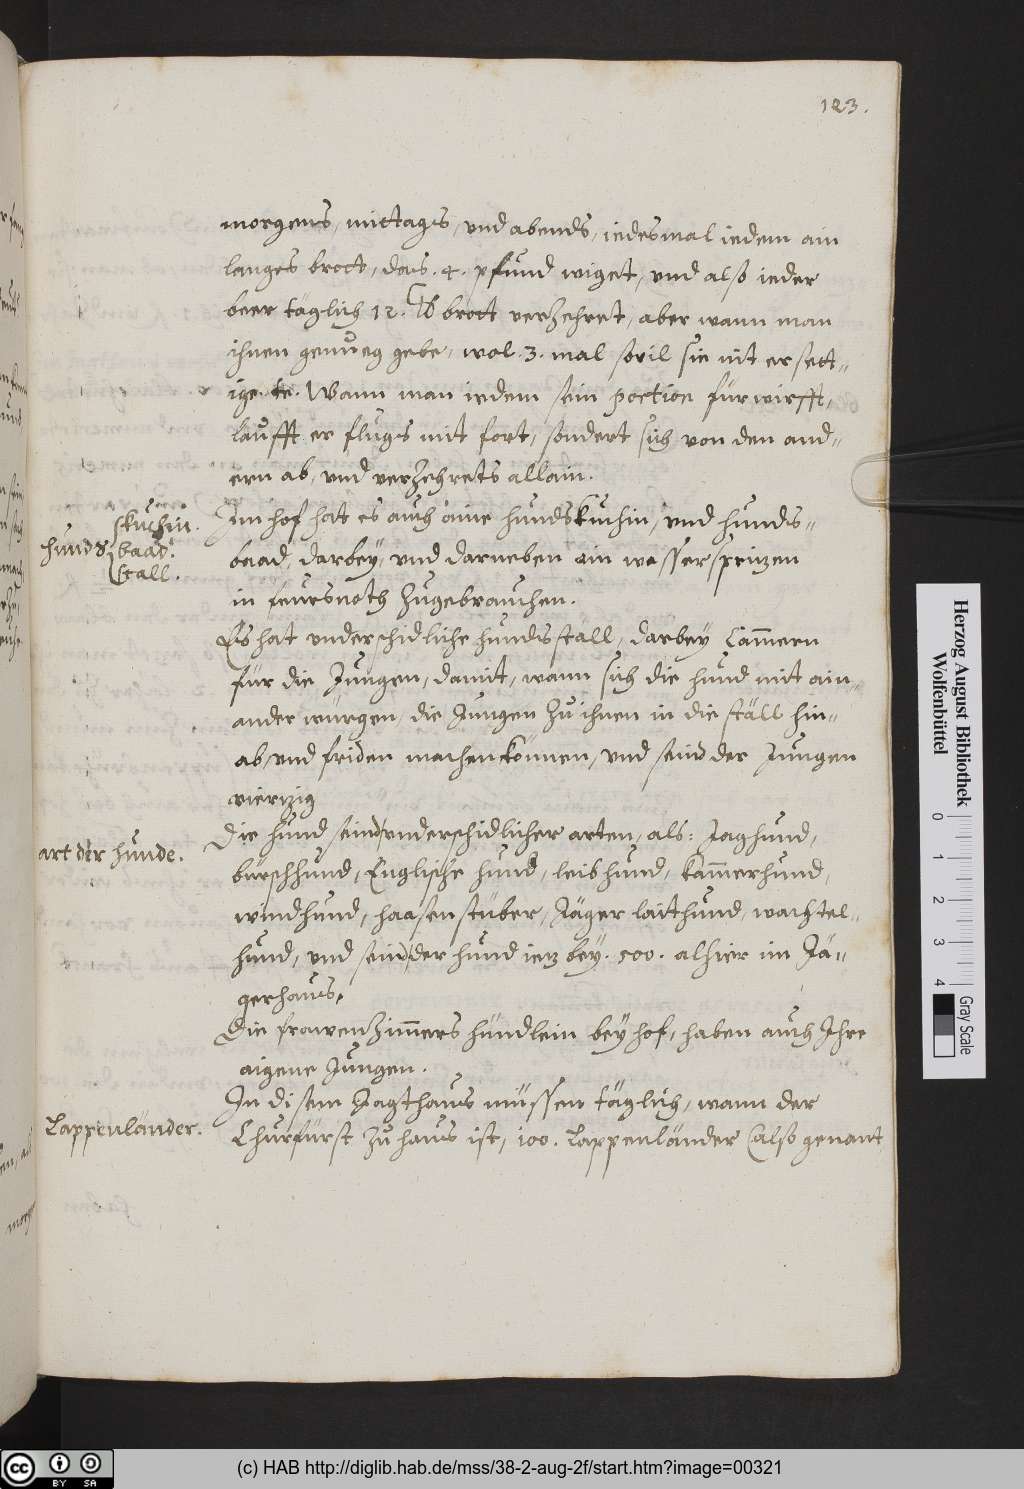 123.
morgens, mittags, vnd abends, iedesmal iedem ain
langes brott, das .4. pfund wiget, vnd also ieder
beer täglich 12. lb brott verzehret, aber wann man
ihnen genueg gebe, wol .3. mal sovil sie nit ersett-
ige. Wann man iedem sein portion fürwirfft,
laufft er flugs mit fort, sondert sich von den and-
ern ab, vnd verzehrets allain.
hunds
skuchin.
baad.
stall.
Im hof hat es auch aine hundskuchin, vnd hunds-
baad, darbey, vnd darneben ain wassersprizen
in feursnoth zugebrauchen.
Es hat vnderschidliche hundsställ, darbey Cam̄ern
für die Jungen, damit, wann sich die hund mit ain-
ander würgen, die Jungen zu ihnen in die ställ hin-
ab, vnd friden machen können, vnd seind der Jungen
vierzig
art der hunde.
Die hund seind vnderschidlicher arten, als: Jaghund,
bürschhund, Englische hund, leibhund, kam̄erhund,
windhund, haasenstüber, Jäger laithund, wachtel-
hund, vnd seind der hund iez bey .500. alhier im Jä-
gerhaus.
Die frawenzim̄ers hündlein bey hof, haben auch Ihre
aigene Jungen.
Lappenländer.
In disem Jagthaus müssen täglich, wann der
Churfürst zu haus ist, 100. Lappenländer (also genant
Herzog August Bibliothek
Wolfenbüttel
0 1 2 3 4
Gray Scale
cc BY SA
(c) HAB http://diglib.hab.de/mss/38-2-aug-2f/start.htm?image=00321